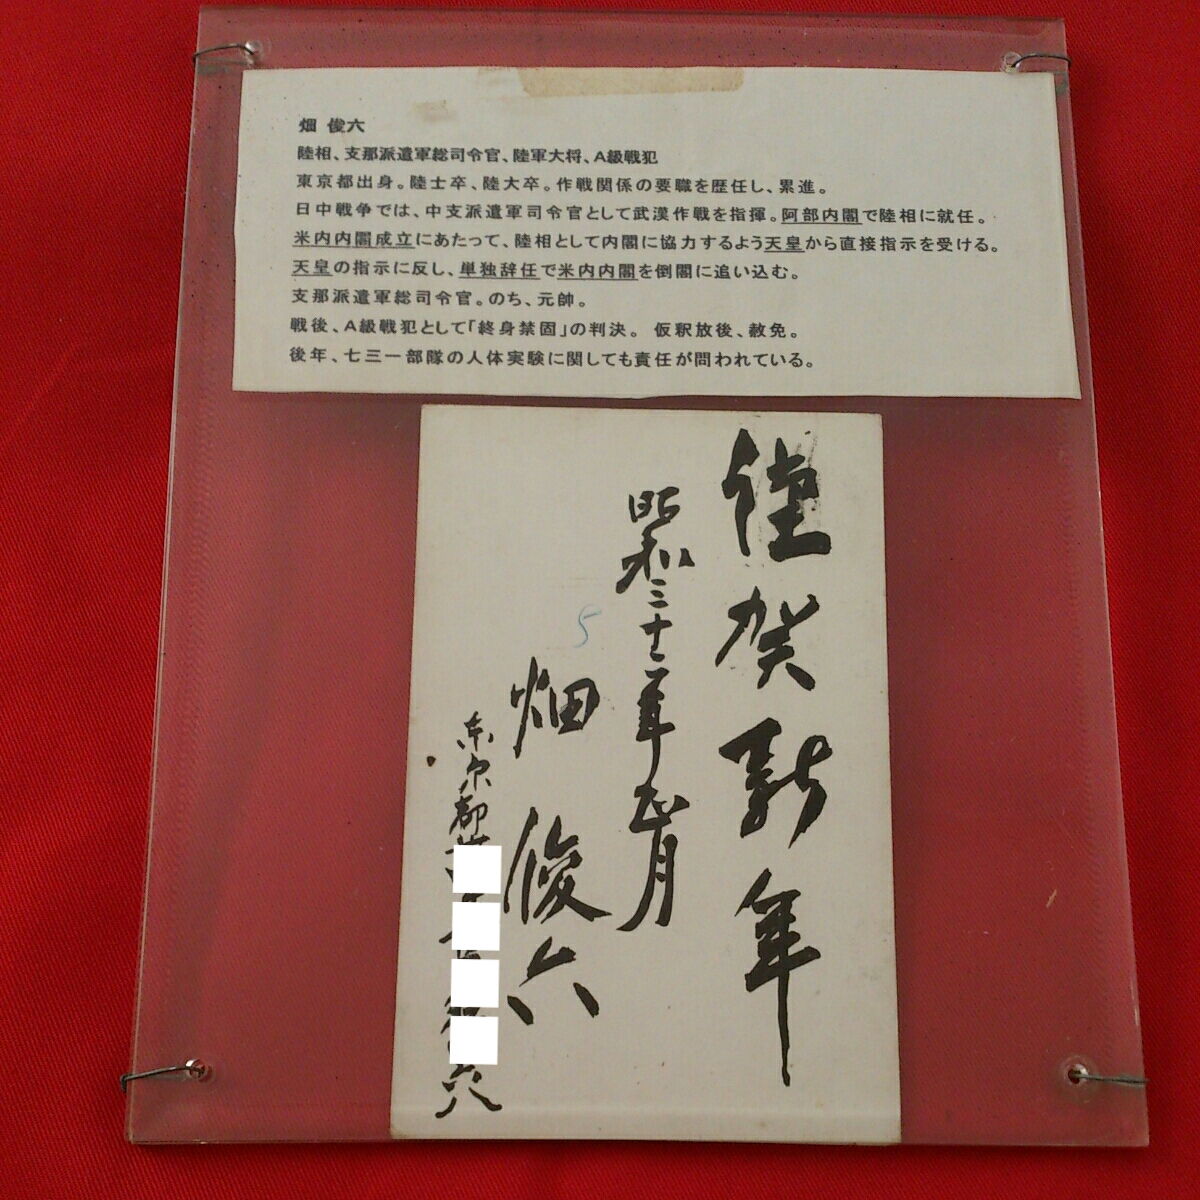 畑 俊六
陸相、支那派遣軍総司令官、陸軍大将、A級戦犯
東京都出身。陸士卒、陸大卒。作戦関係の要職を歴任し、累進。
日中戦争では、中支派遣軍司令官として武漢作戦を指揮。阿部内閣で陸相に就任。
米内内閣成立にあたって、陸相として内閣に協力するよう天皇から直接指示を受ける。
天皇の指示に反し、単独辞任で米内内閣を倒閣に追い込む。
支那派遣軍総司令官。のち、元帥。
戦後、A級戦犯として「終身禁固」の判決。 仮釈放後、赦免。
後年、七三一部隊の人体実験に関しても責任が問われている。
謹賀新年
昭和三十二年正月
5
畑 俊六
東京都